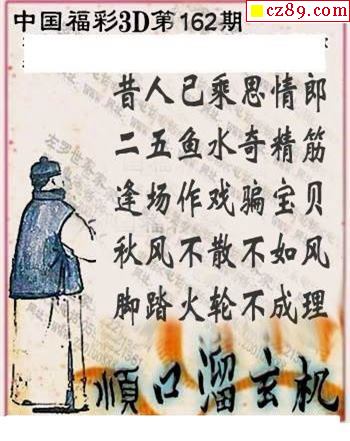 cz89.com
中国福彩3D第162期
昔人已乘思情郎
二五鱼水奇精筋
逢场作戏骗宝贝
秋风不散不如风
脚踏火轮不成理
順口溜玄机